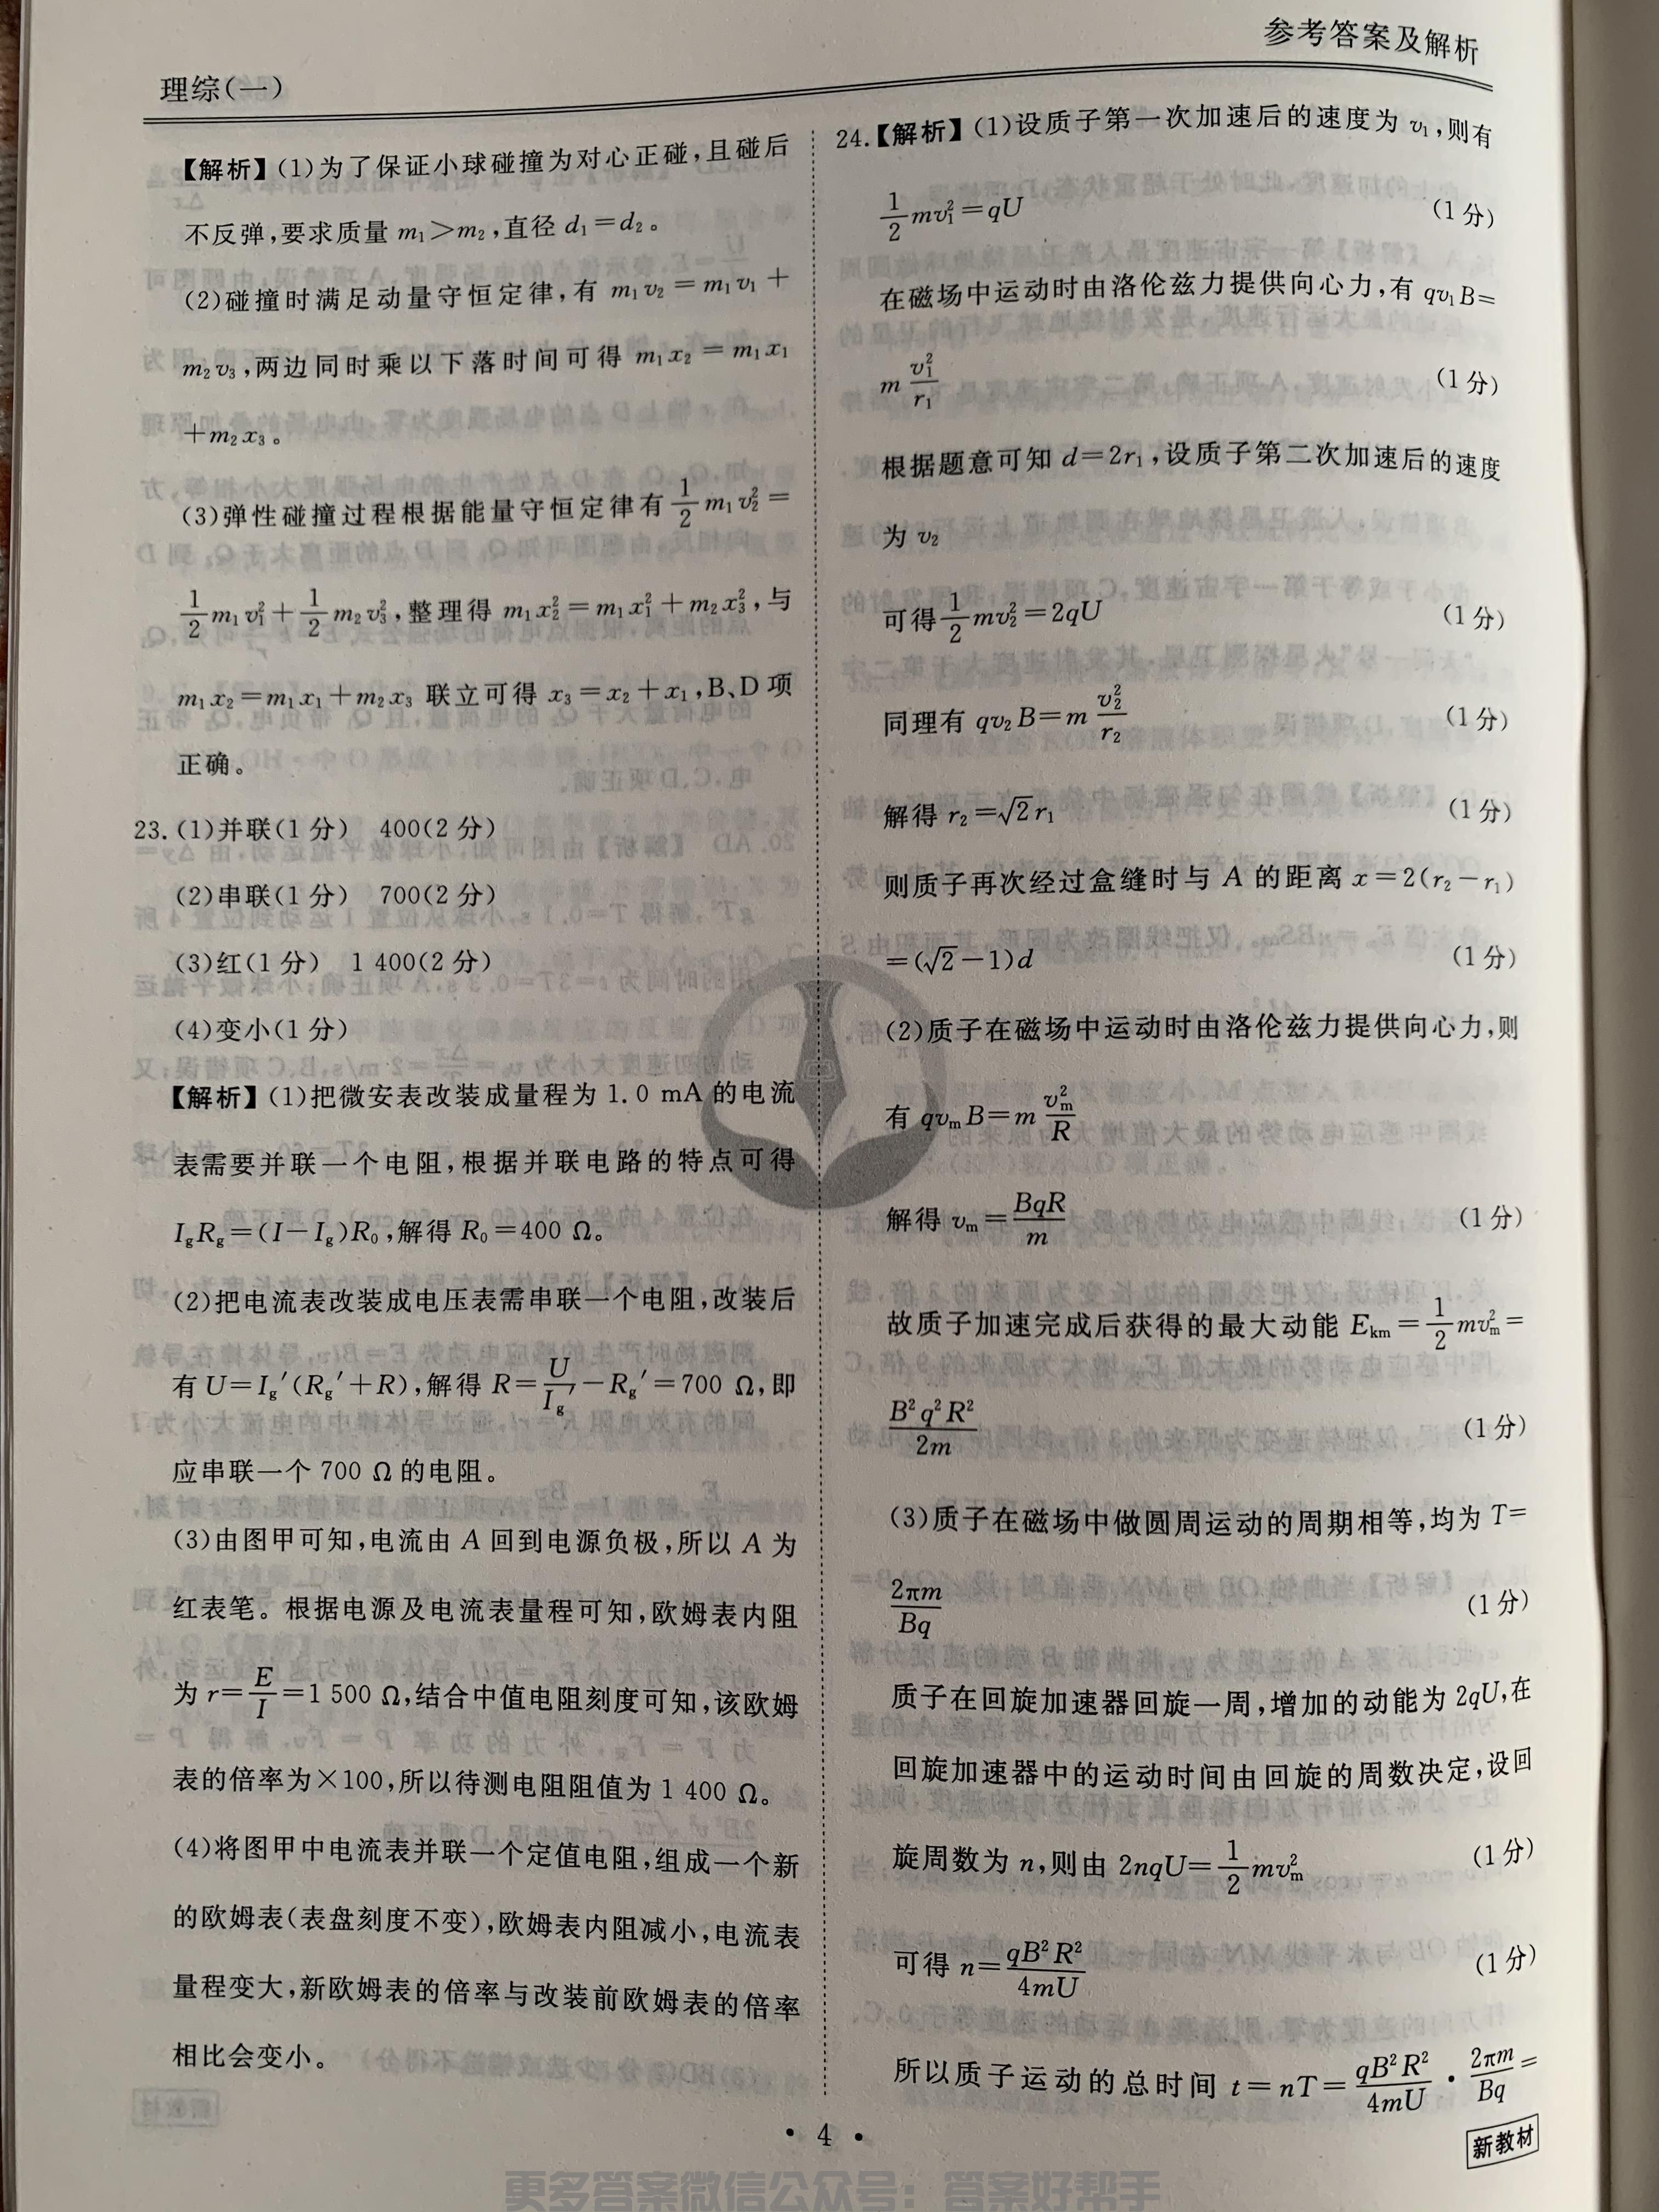 参考答案及解析
理综(一)
【解析】(1)为了保证小球碰撞为对心正碰,且碰后
不反弹,要求质量 m₁>m₂,直径 d₁=d₂。
(2)碰撞时满足动量守恒定律,有 m₁v₂=m₁v₁+
m₂v₃,两边同时乘以下落时间可得 m₁x₂=m₁x₁
+m₂x₃。
(3)弹性碰撞过程根据能量守恒定律有 1/2 m₁v₂²=
1/2 m₁v₁²+1/2 m₂v₃²,整理得 m₁x₂²=m₁x₁²+m₂x₃²,与
m₁x₂=m₁x₁+m₂x₃ 联立可得 x₃=x₂+x₁,B、D 项
正确。
23.(1)并联(1分) 400(2分)
(2)串联(1分) 700(2分)
(3)红(1分) 1 400(2分)
(4)变小(1分)
【解析】(1)把微安表改装成量程为 1.0 mA 的电流
表需要并联一个电阻,根据并联电路的特点可得
IgRg=(I-Ig)R₀,解得 R₀=400 Ω。
(2)把电流表改装成电压表需串联一个电阻,改装后
有 U=Ig′(Rg′+R),解得 R=U/Ig′-Rg′=700 Ω,即
应串联一个 700 Ω 的电阻。
(3)由图甲可知,电流由 A 回到电源负极,所以 A 为
红表笔。根据电源及电流表量程可知,欧姆表内阻
为 r=E/I=1 500 Ω,结合中值电阻刻度可知,该欧姆
表的倍率为×100,所以待测电阻阻值为 1 400 Ω。
(4)将图甲中电流表并联一个定值电阻,组成一个新
的欧姆表(表盘刻度不变),欧姆表内阻减小,电流表
量程变大,新欧姆表的倍率与改装前欧姆表的倍率
相比会变小。
24.【解析】(1)设质子第一次加速后的速度为 v₁,则有
1/2 mv₁²=qU (1分)
在磁场中运动时由洛伦兹力提供向心力,有 qv₁B=
m v₁²/r₁ (1分)
根据题意可知 d=2r₁,设质子第二次加速后的速度
为 v₂
可得 1/2 mv₂²=2qU (1分)
同理有 qv₂B=m v₂²/r₂ (1分)
解得 r₂=√2r₁ (1分)
则质子再次经过盒缝时与 A 的距离 x=2(r₂-r₁)
=(√2-1)d (1分)
(2)质子在磁场中运动时由洛伦兹力提供向心力,则
有 qvₘB=m vₘ²/R
解得 vₘ=BqR/m (1分)
故质子加速完成后获得的最大动能 Eₖₘ=1/2 mvₘ²=
B²q²R²/2m (1分)
(3)质子在磁场中做圆周运动的周期相等,均为 T=
2πm/Bq (1分)
质子在回旋加速器回旋一周,增加的动能为 2qU,在
回旋加速器中的运动时间由回旋的周数决定,设回
旋周数为 n,则由 2nqU=1/2 mvₘ² (1分)
可得 n=qB²R²/4mU (1分)
所以质子运动的总时间 t=nT=qB²R²/4mU·2πm/Bq=
·4·
新教材
更多答案微信公众号：答案好帮手